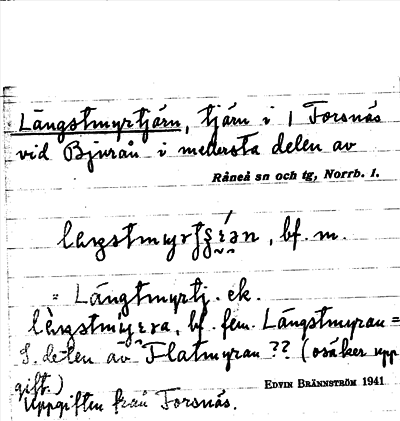 Längstmyrtjärn, tjärn i 1 Forsnäs
vid Bjurån i nedersta delen av
Råneå sn och tg, Norrb. l.
bf. m.
= Längtmyrtj. ek.
bf. fem. Längstmyran =
S. delen av Flatmyran ?? (osäker upp
gift.)
EDVIN BRÄNNSTRÖM 1941
Uppgiften från Forsnäs.